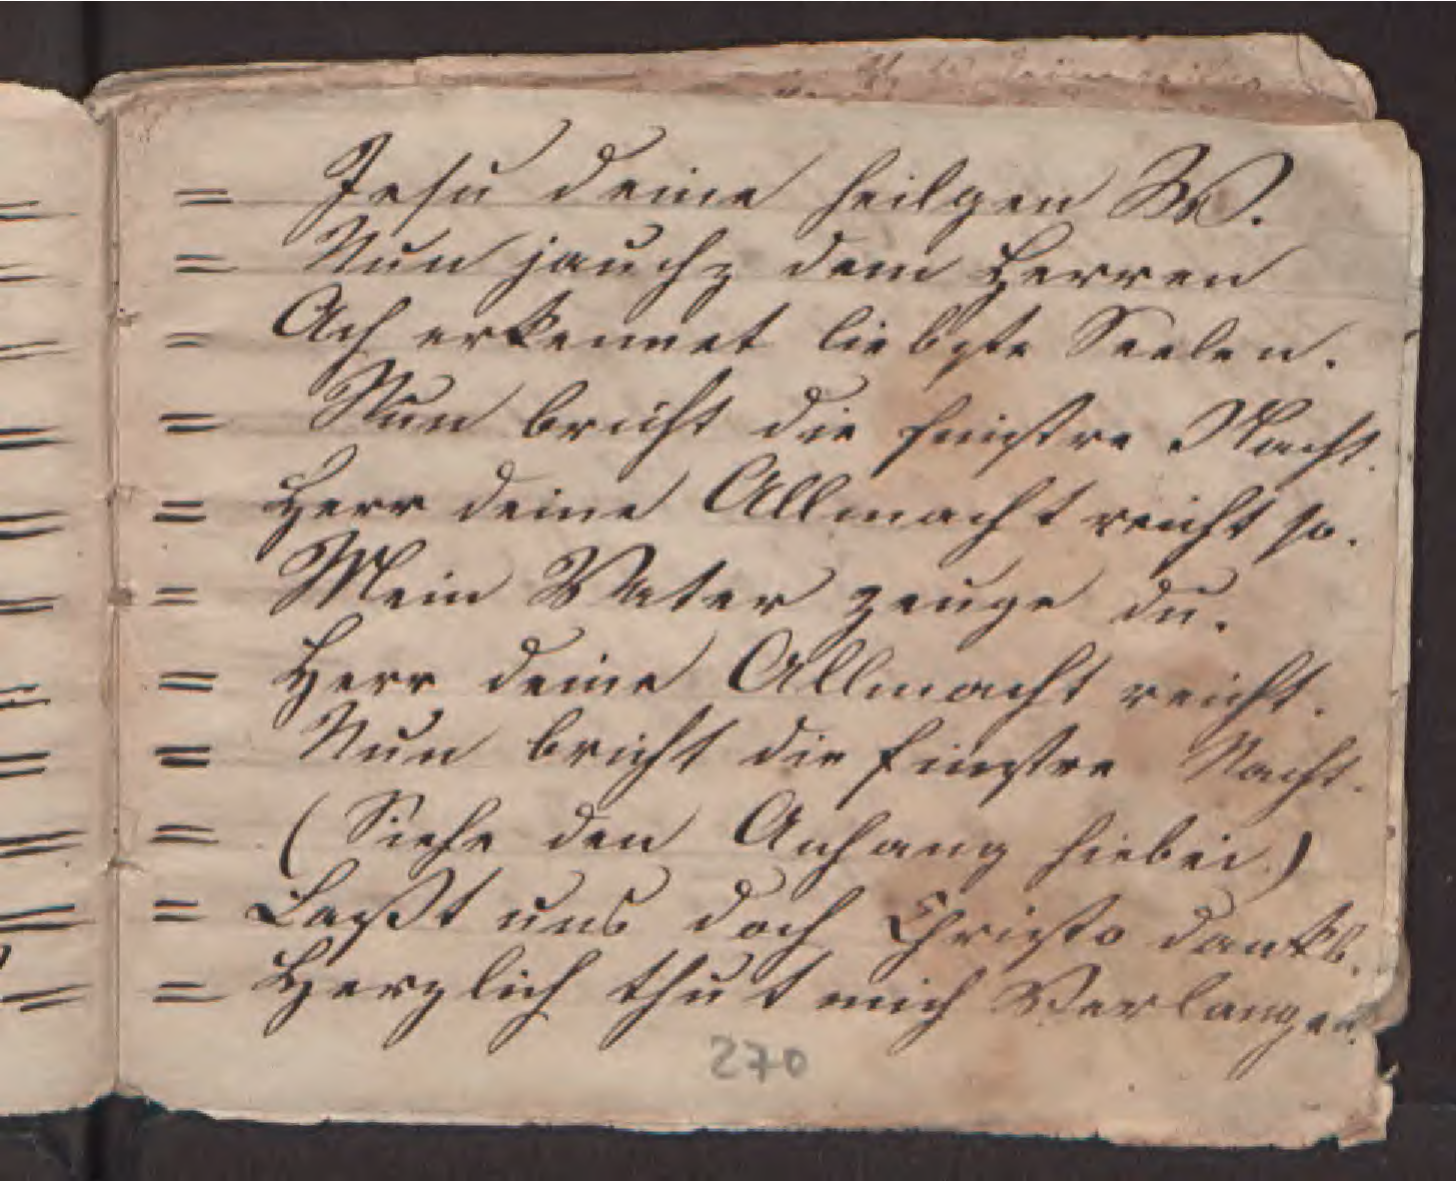 = Jesu deine heilgen W.
= Nun jauchz dem Herren
= Ach erkennet liebste Seelen.
= Nun bricht die finstre Nacht.
= Herr deine Allmacht reicht so.
= Mein Vater zeuge du.
= Herr deine Allmacht reicht.
= Nun bricht die finstre Nacht.
= (Siehe den Anhang hiebei.)
= Laßt uns doch Christo dankb.
= Herzlich thut mich Verlangen.
270